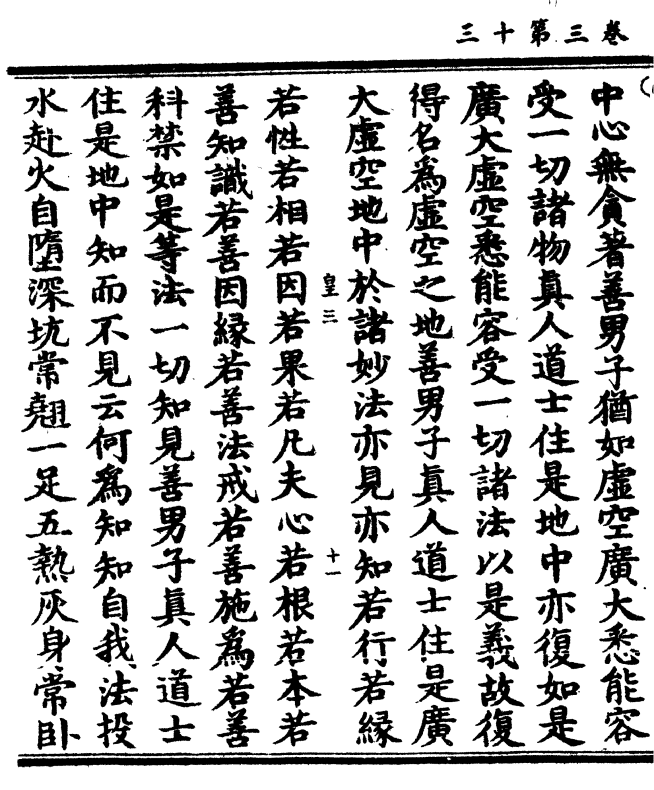 卷三第十三
中心無貪著善男子猶如虛空廣大悉能容
受一切諸物真人道士住是地中亦復如是
廣大虛空悉能容受一切諸法以是義故復
得名為虛空之地善男子真人道士住是廣
大虛空地中於諸妙法亦見亦知若行若緣
皇三
十一
若性若相若因若果若凡夫心若根若本若
善知識若善因緣若善法戒若善施為若善
科禁如是等法一切知見善男子真人道士
住是地中知而不見云何為知知自我法投
水赴火自墮深坑常翹一足五熱灰身常臥